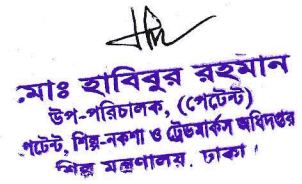 মোঃ হাবিবুর রহমান
উপ-পরিচালক, (পেটেন্ট)
পেটেন্ট, শিল্প-নকশা ও ট্রেডমার্কস অধিদপ্তর
শিল্প মন্ত্রণালয়, ঢাকা।